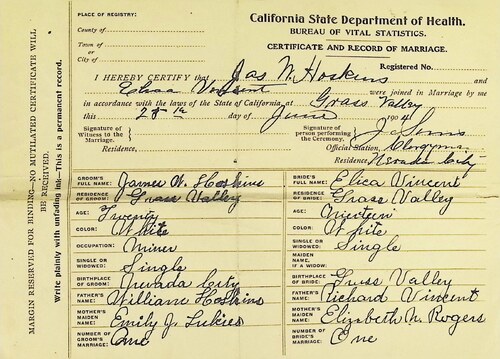 California State Department of Health.
BUREAU OF VITAL STATISTICS.
CERTIFICATE AND RECORD OF MARRIAGE.
PLACE OF REGISTRY:
County of
Town of
or
City of
Registered No.
I HEREBY CERTIFY that Jas W. Hoskins and
Elica Vincent were joined in Marriage by me
in accordance with the laws of the State of California, at Grass Valley
this day of June 190
Signature of
Witness to the
Marriage.
Residence,
Signature of
person performing
the Ceremony.
Official Station, Clergyman
Residence Nevada City
GROOM'S FULL NAME: James W. Hoskins
RESIDENCE OF GROOM: Grass Valley
AGE: Twenty
COLOR: White
OCCUPATION: Miner
SINGLE OR WIDOWED: Single
BIRTHPLACE OF GROOM: Nevada City
FATHER'S NAME: William Hoskins
MOTHER'S MAIDEN NAME: Emily J.
NUMBER OF GROOM'S MARRIAGE: One
BRIDE'S FULL NAME: Elica Vincent
RESIDENCE OF BRIDE: Grass Valley
AGE: Nineteen
COLOR: White
SINGLE OR WIDOWED: Single
MAIDEN NAME, IF A WIDOW:
BIRTHPLACE OF BRIDE: Grass Valley
FATHER'S NAME: Richard Vincent
MOTHER'S MAIDEN NAME: Elizabeth N. Rogers
NUMBER OF BRIDE'S MARRIAGE: One
MARGIN RESERVED FOR BINDING—NO MUTILATED CERTIFICATE WILL
BE RECEIVED.
Write plainly with unfading ink—This is a permanent record.